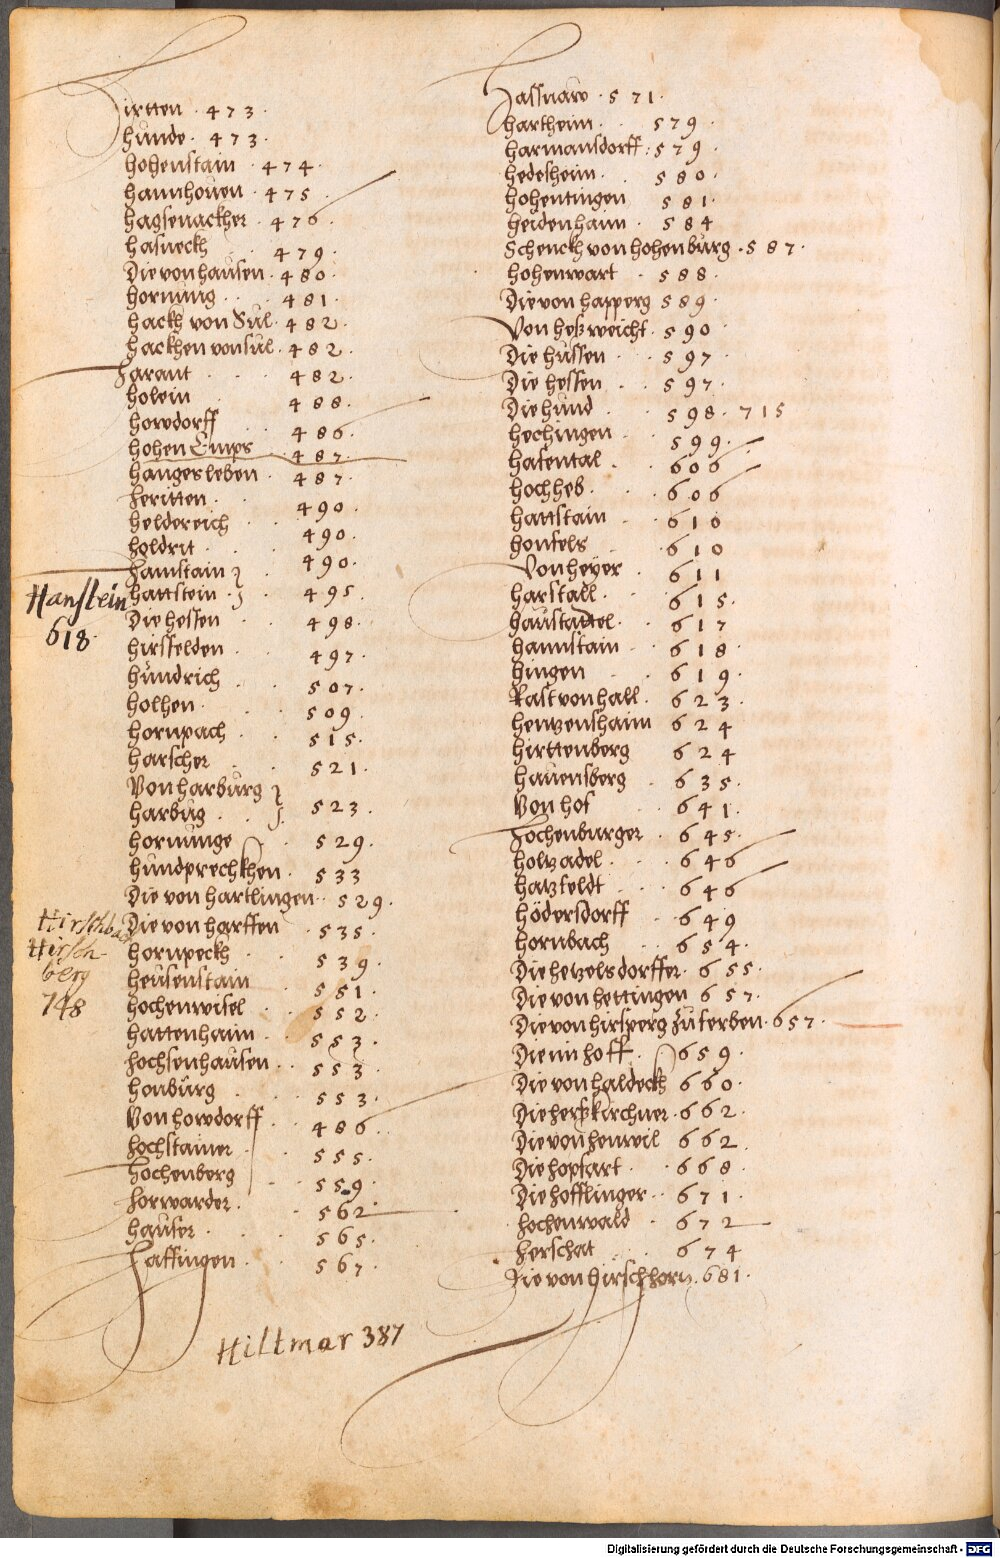 Hirtten · 473 ·
hunde · 473 ·
hohenstain · 474 ·
hannhouen · 475
hagsenackher · 476
hasneckh 479 ·
Die von hausen · 480 ·
hornung · 481 ·
hackh von Sul · 482 ·
hackhen von sul · 482 ·
Harant 482 ·
holein 488 ·
howdorff 486 ·
hohen Emps 487 ·
hangesleben · 487 ·
Heritten · 490 ·
heldereich 490 ·
holdrit · 490 ·
Hamstain
hattstein · 495 ·
Hanstein
618 ·
Die hessen 498 ·
hirsfelden 497 ·
hündrich 507 ·
holhen · 509 ·
hornpach 515 ·
harscher 521 ·
Von harburg
harbug 523 ·
hornunge 529 ·
hundprechkhen · 533
Die von hartlingen · 529 ·
Die von harffen 535 ·
Hirschbach
Hirsch-
berg
748
hornpeckh 539 ·
heusenstain 551 ·
hochenwisel 552 ·
hattenhaim 553 ·
Hochsenhausen · 553 ·
honburg 553 ·
Von howdorff · 486 ·
Hochstainer 555 ·
Hochenberg 559 ·
Horwarder · 562
hauser · 565 ·
Haffingen · 567 ·
Hiltmar 387
Hassnaw · 571 ·
hartheim · 579 ·
harmansdorff : 579 ·
hedesheim · 580 ·
hohentingen 581 ·
heidenhaim · 584
Schenckh von hohenburg · 587 ·
hohenwart · 588 ·
Die von happerg 589 ·
Von heßweicht · 590 ·
Die hussen · 597 ·
Die hessen · 597 ·
Die hund · 598 · 715
hechingen 599 ·
hafental · 606
hochheb · 606
hattstain 610
honfels 610
Von heyer · 611
harstall · 615 ·
haustattel · 617
hannstain 618 ·
hingen 619 ·
Rast von hall · 623 ·
hentzenshaim 624
hirttenberg 624
hauensberg · 635 ·
Von hof 641 ·
Hochenburger · 645 ·
holtzadel · 646
hatzfeldt 646
hödersdorff · 649
hornbach · 654 ·
Die hetzelsdorffer · 655 ·
Die von hettingen 657 ·
Die von hirsperg zu ferben · 657 ·
Die im Hoff · 659 ·
Die von haldeckh 660 ·
Die herßkirchner · 662 ·
Die von henweil 662
Die hopfart · 668
Die hofflinger · 671 ·
Hochenwald · 672
Herschat 674
Die von Hirschhorn · 681 ·
Digitalisierung gefördert durch die Deutsche Forschungsgemeinschaft - DFG